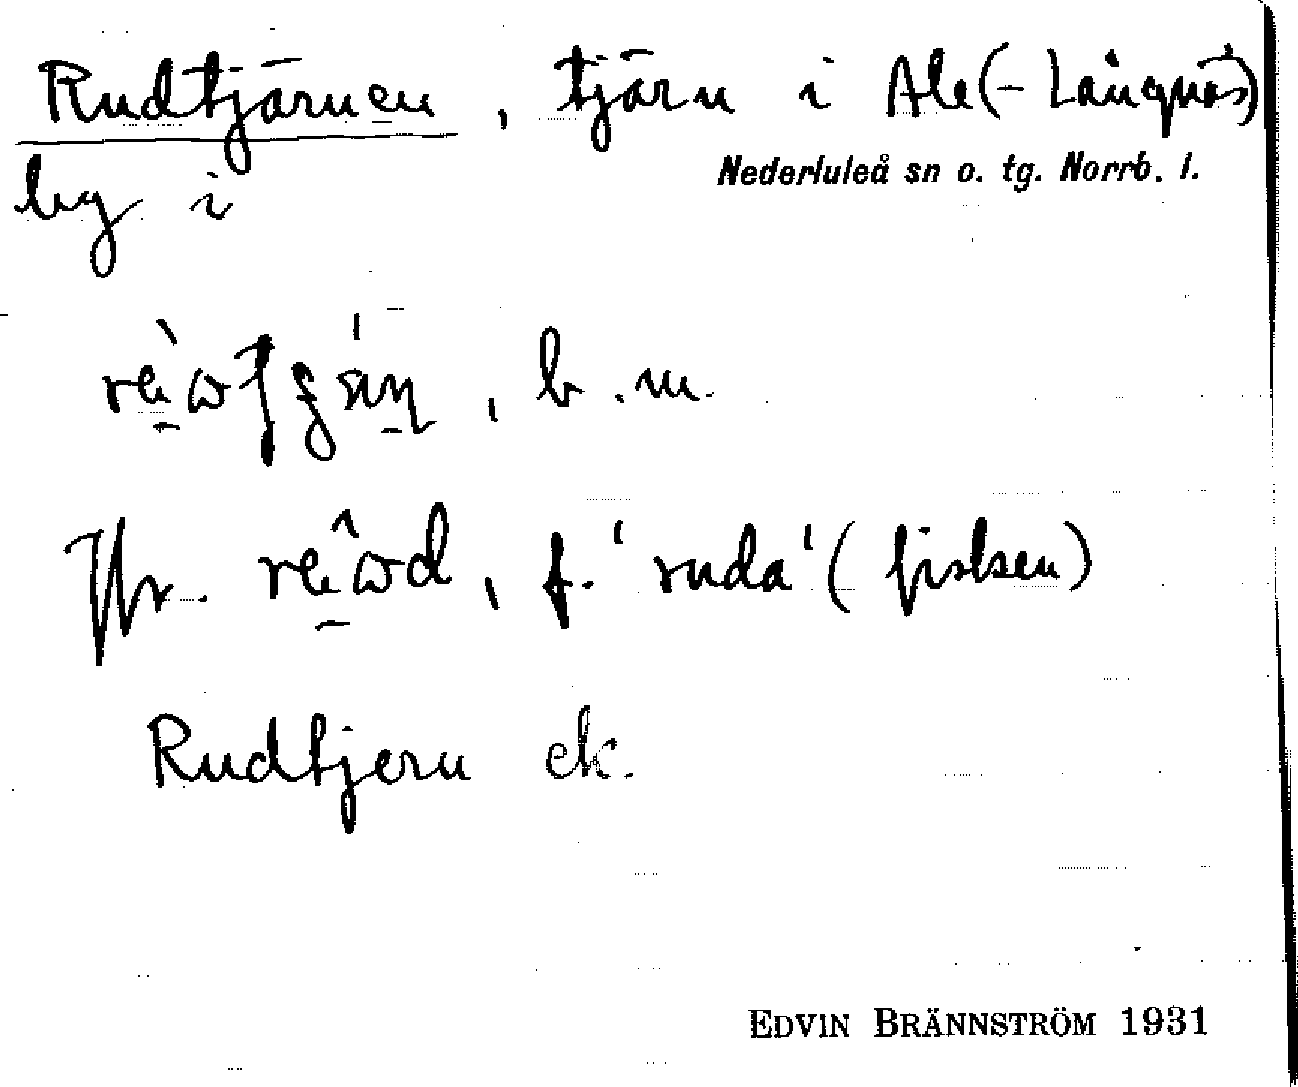 Rudtjärnen, tjärn i Ale(-Långnäs)
by i Nederluleå sn o. tg. Norrb. l.
, b. m.
Jfr. , f. 'ruda' (fisken)
Rudtjern ek.
EDVIN BRÄNNSTRÖM 1931